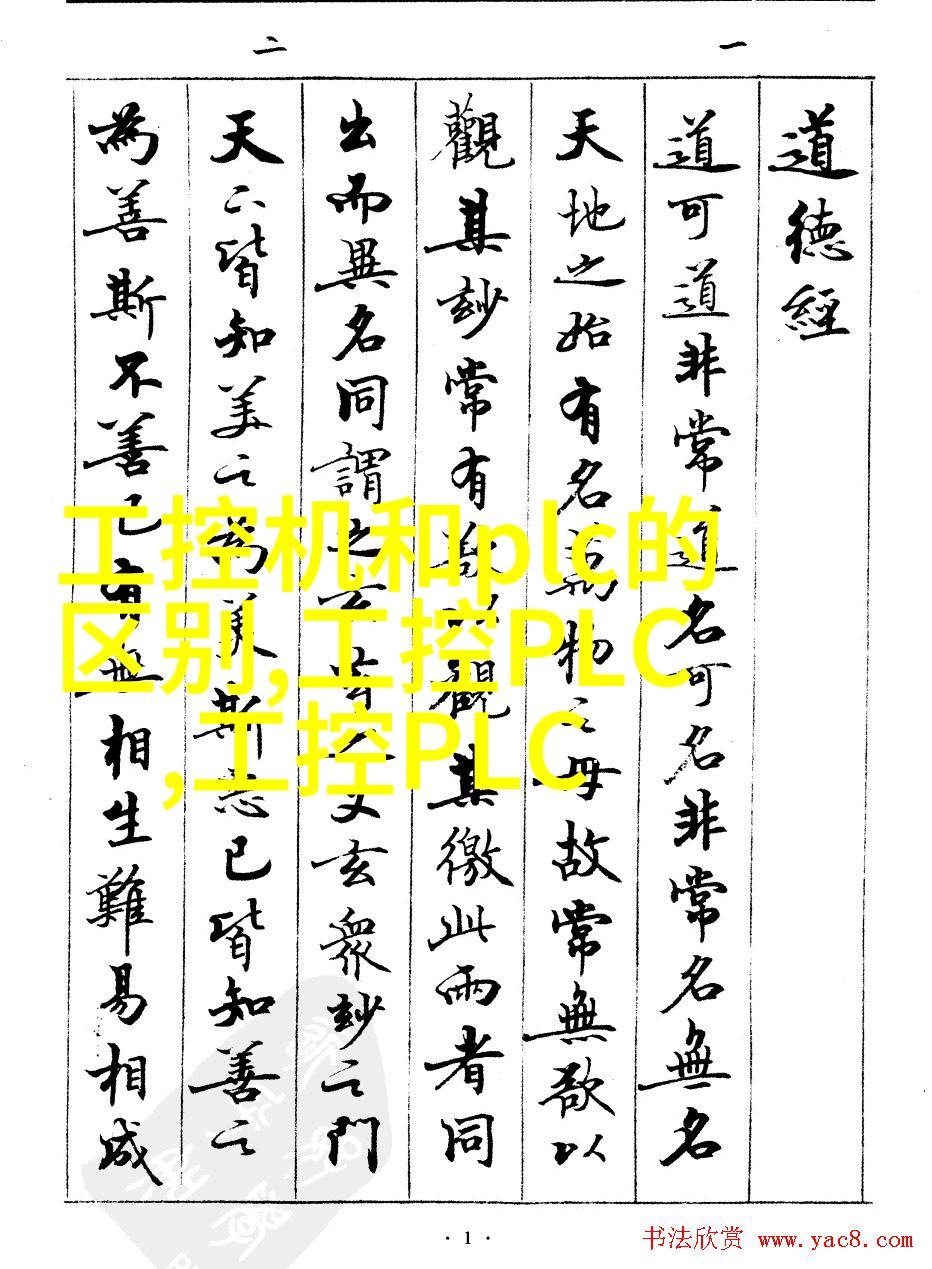 一
二
道德經
道可道非常道名可名非常名無名
天地之始有名萬物之母故常無欲以
觀其玅常有欲以觀其徼此兩者同
出而異名同謂之玄玄之又玄衆玅之門
天下皆知美之為美斯惡已皆知善之
為善斯不善已有無相生難易相成
工控机和plc的
区别,工控PLC
,工控PLC
· 1 ·
书法欣赏 www.yac8.com